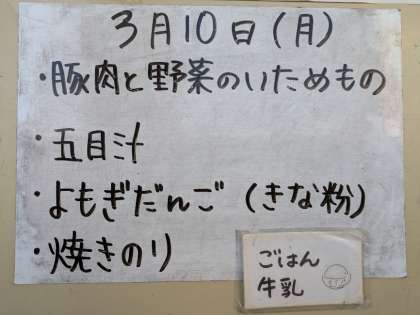 3月10日(月)
・豚肉と野菜のいためもの
・五目汁
・よもぎだんご(きな粉)
・焼きのり
ごはん
牛乳